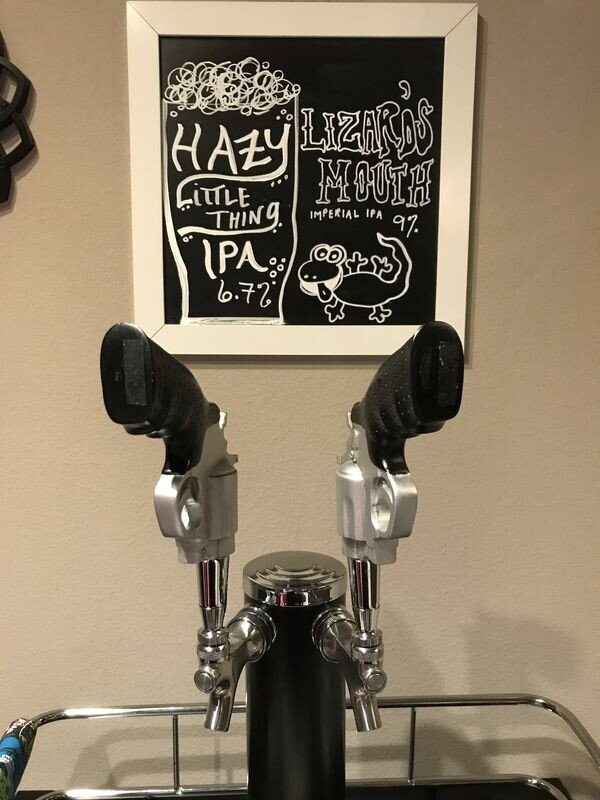 HAZY
LITTLE
THING
IPA
6.7%
LIZARD'S
MOUTH
IMPERIAL IPA
9%